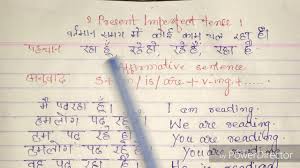 2 Present Imperfect tense !
वर्तमान समय में कोई काम चल रहा है।
पहचान रहा हूँ, रहे हो, रहे हैं, रहा है
Affirmative sentence
अनुवाद S + /is/are + v-ing +
मैं पढ़ रहा हूँ। I am reading.
हमलोग पढ़ रहे हैं। We are reading.
तुम पढ़ रहे हो। You are reading.
पढ़ रहे हैं। You are reading
वह पढ़ रहा है।
PowerDirector